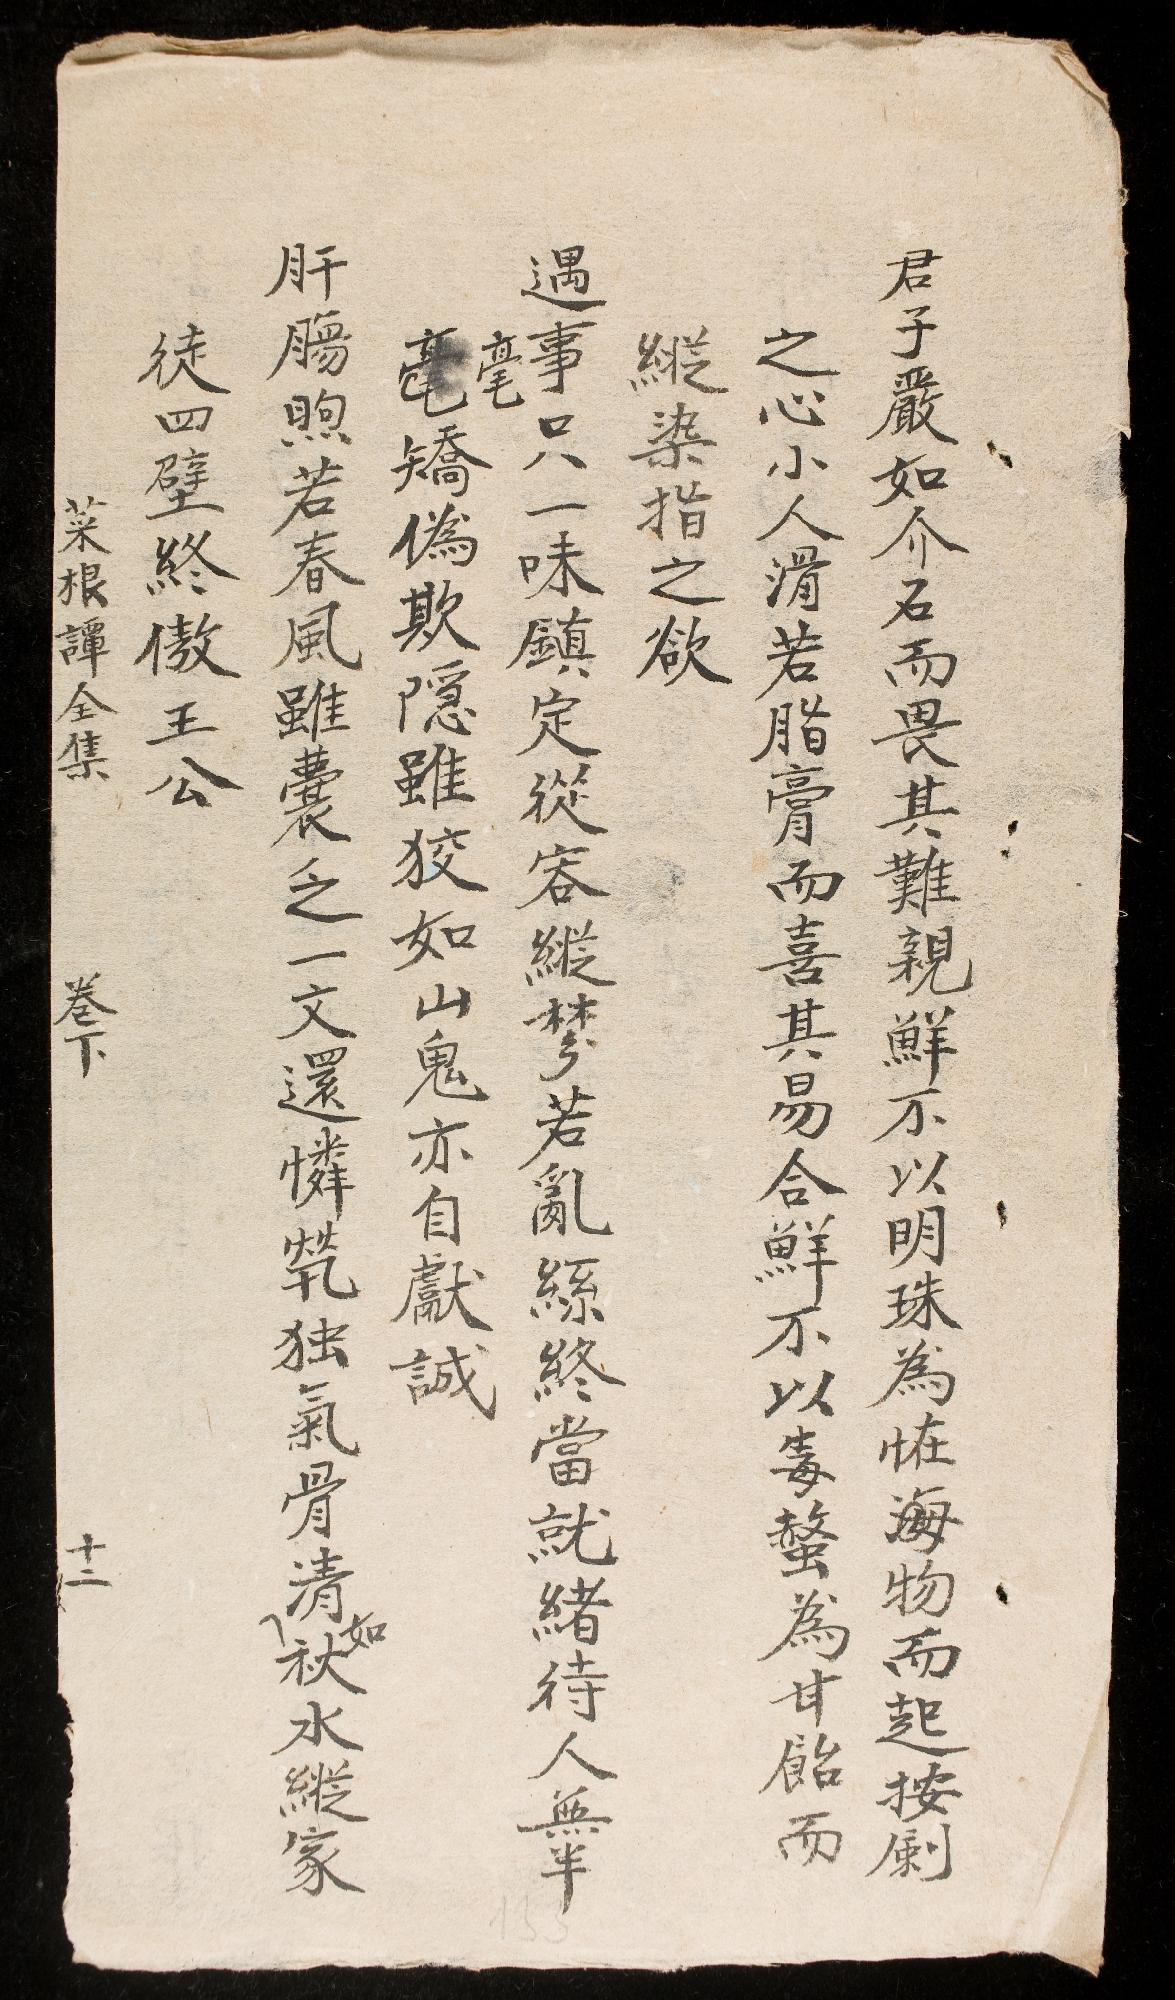 君子嚴如介石而畏其難親鮮不以明珠為恠海物而起按劍
之心小人滑若脂膏而喜其易合鮮不以毒螫為甘飴而
縱染指之欲
遇事只一味鎮定從容縱棼若亂絲終當就緒待人無半
毫矯偽欺隱雖狡如山鬼亦自獻誠
毫
肝腸煦若春風雖囊乏一文還憐煢独氣骨清秋水縱家
如
徒四壁終傲王公
菜根譚全集 卷下 十二
155